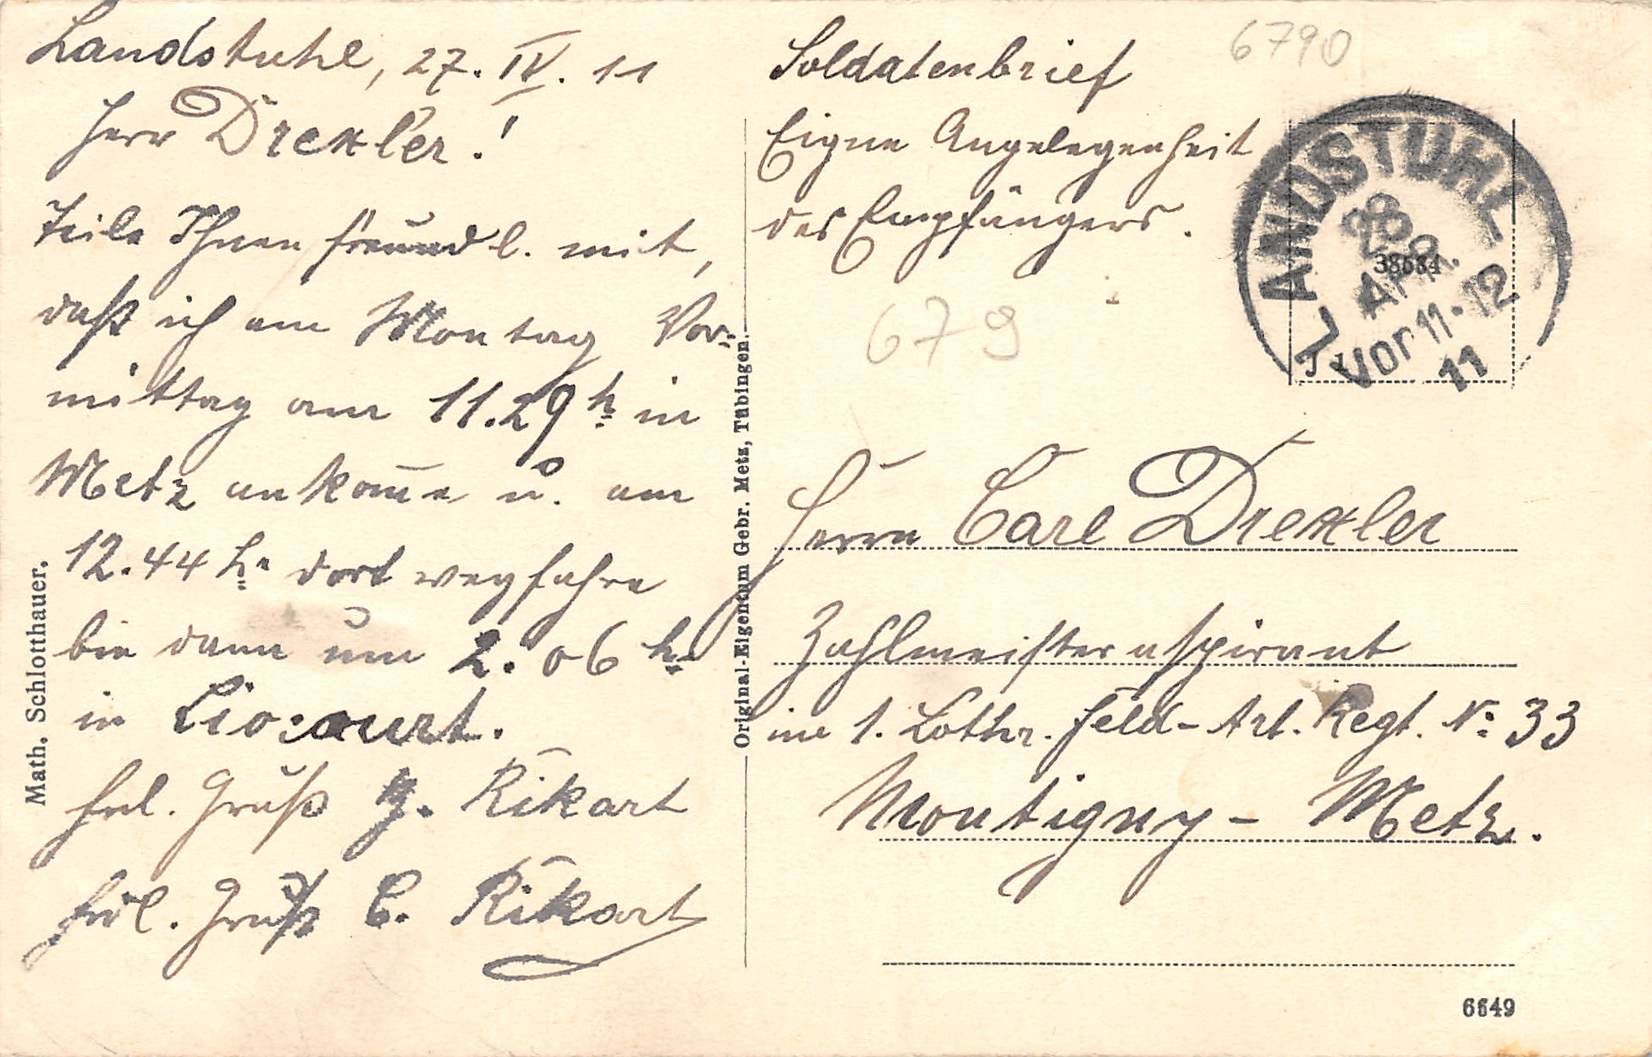 Landstuhl, 27. IV. 11
Herr Drexler!
Teile Ihnen freundl. mit,
daß ich am Montag Vor-
mittag am 11.29 h in
Metz ankom̅e u. um
12.44 h dort wegfahre
bin dann um 2.06 h
in
frdl. Gruß Rikart
frdl. Gruß C. Rikart
Math. Schlotthauer.
Original-Eigentum Gebr. Metz, Tübingen.
6790
Soldatenbrief
Eigne Angelegenheit
des Empfängers.
679
LANDSTUHL
28 APR.
Vor 11-12
11
38684
Herrn Carl Drexler
Zahlmeisteraspirant
im 1. Lothr. Feld-Art. Regt. No 33
Montigny - Metz.
6649